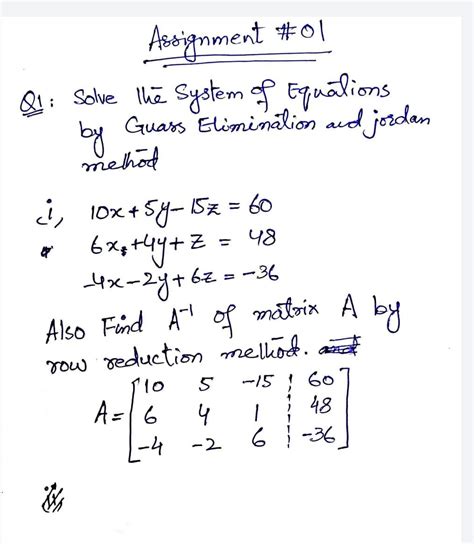 Assignment #01
Q1: Solve the System of Equations
by Guass Elimination and jordan
method
i, 10x + 5y - 15z = 60
6x + 4y + z = 48
-4x - 2y + 6z = -36
Also Find A⁻¹ of matrix A by
row reduction method.
A = [10 5 -15 | 60
6 4 1 | 48
-4 -2 6 | -36]